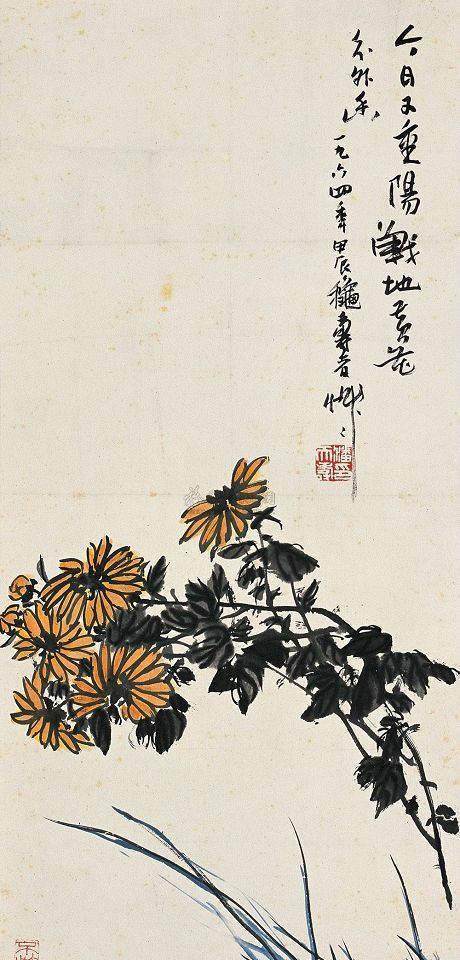 今日又重陽戰地黃花
分外香 一九六四年甲辰龝壽者
潘天壽印